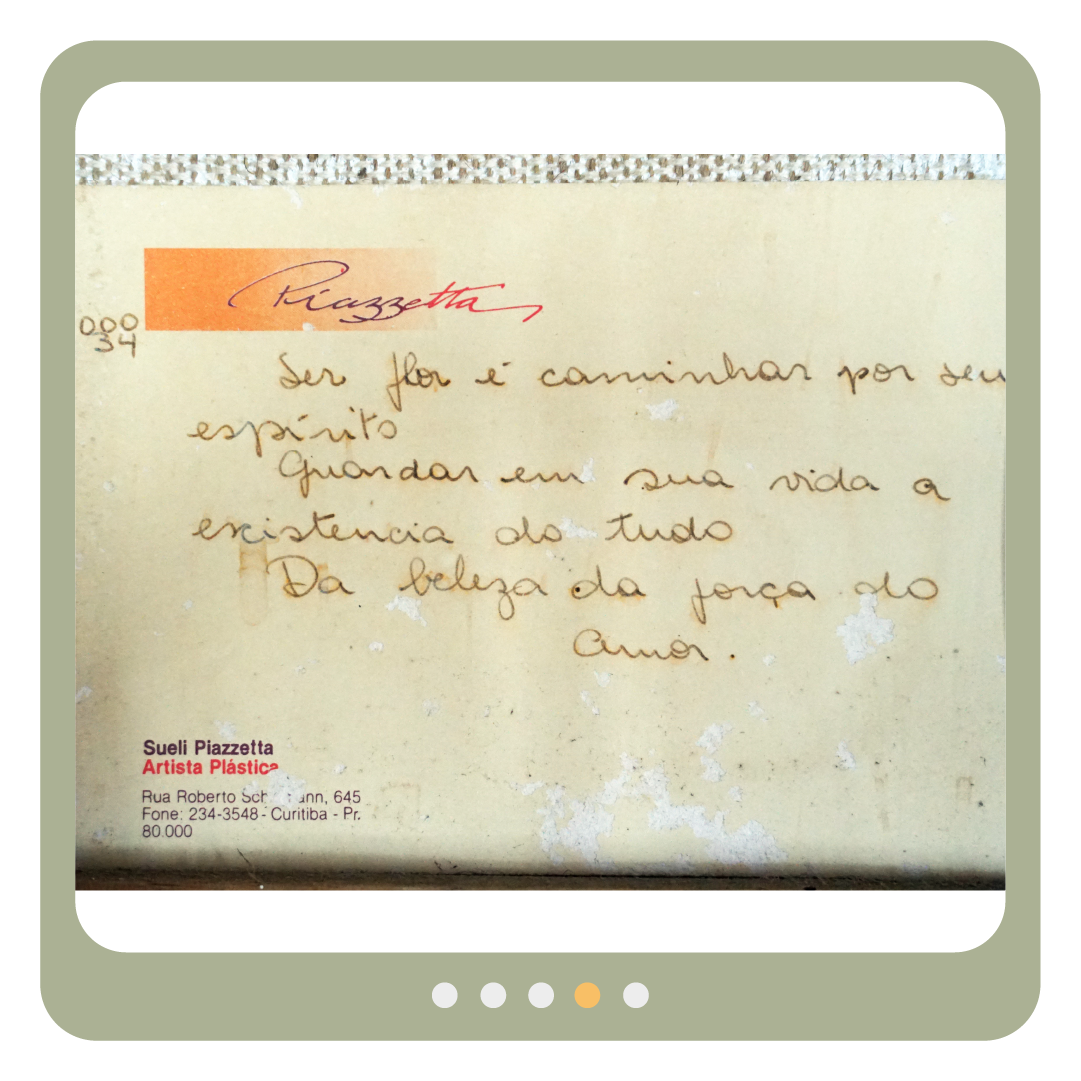 Piazzetta
000
34
Ser flor é caminhar por seu
espírito
Guardar em sua vida a
existencia do tudo
Da beleza da força do
Amor.
Sueli Piazzetta
Artista Plástica
Rua Roberto 645
Fone: 234-3548 - Curitiba - Pr.
80.000